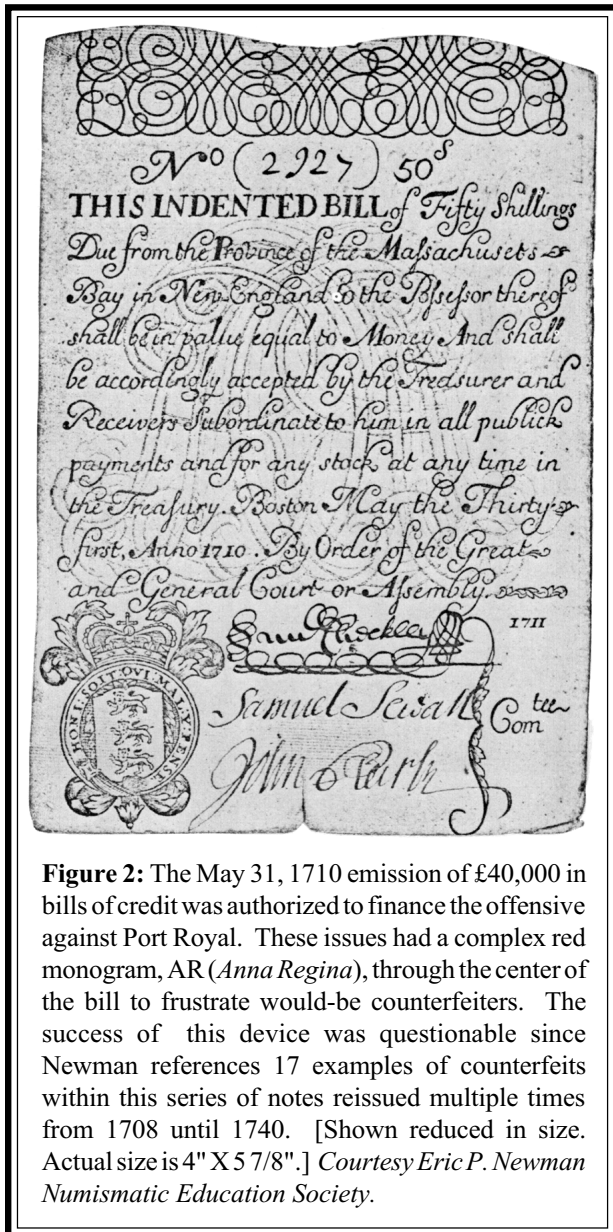 Nº (2927) 50s
THIS INDENTED BILL of Fifty Shillings
Due from the Province of the Maſsachusets
Bay in New-England to the Poſseſsor thereof
shall be in value equal to Money And shall
be accordingly accepted by the Treasurer and
Receivers Subordinate to him in all publick
payments and for any stock at any time in
the Treasury. Boston May the Thirty-
first, Anno 1710. By Order of the Great
and General Court or Aſsembly.
1711
HONI SOIT QVI MAL Y PENSE
Samuel Sewall
Comtee
John
Figure 2: The May 31, 1710 emission of £40,000 in
bills of credit was authorized to finance the offensive
against Port Royal. These issues had a complex red
monogram, AR (Anna Regina), through the center of
the bill to frustrate would-be counterfeiters. The
success of this device was questionable since
Newman references 17 examples of counterfeits
within this series of notes reissued multiple times
from 1708 until 1740. [Shown reduced in size.
Actual size is 4" X 5 7/8".] Courtesy Eric P. Newman
Numismatic Education Society.